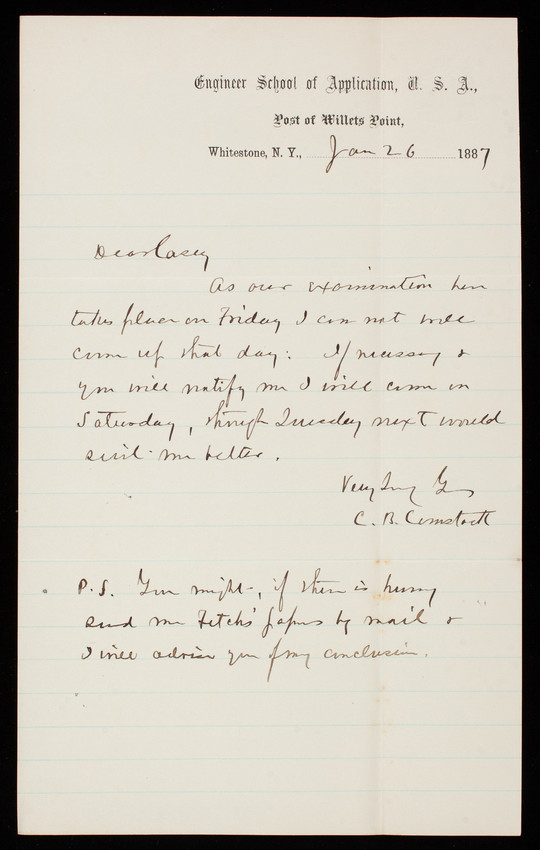 Engineer School of Application, U. S. A.,
Post of Willets Point,
Whitestone, N. Y., Jan 26 1887
Dear Casey
As our examination here
takes place on Friday I can not well
come up that day: If necessary &
you will notify me I will come on
Saturday, though Tuesday next would
suit me better.
Very truly Yrs
C. B. Comstock
P.S. You might, if there is hurry
send me papers by mail &
I will advise you of my conclusion.